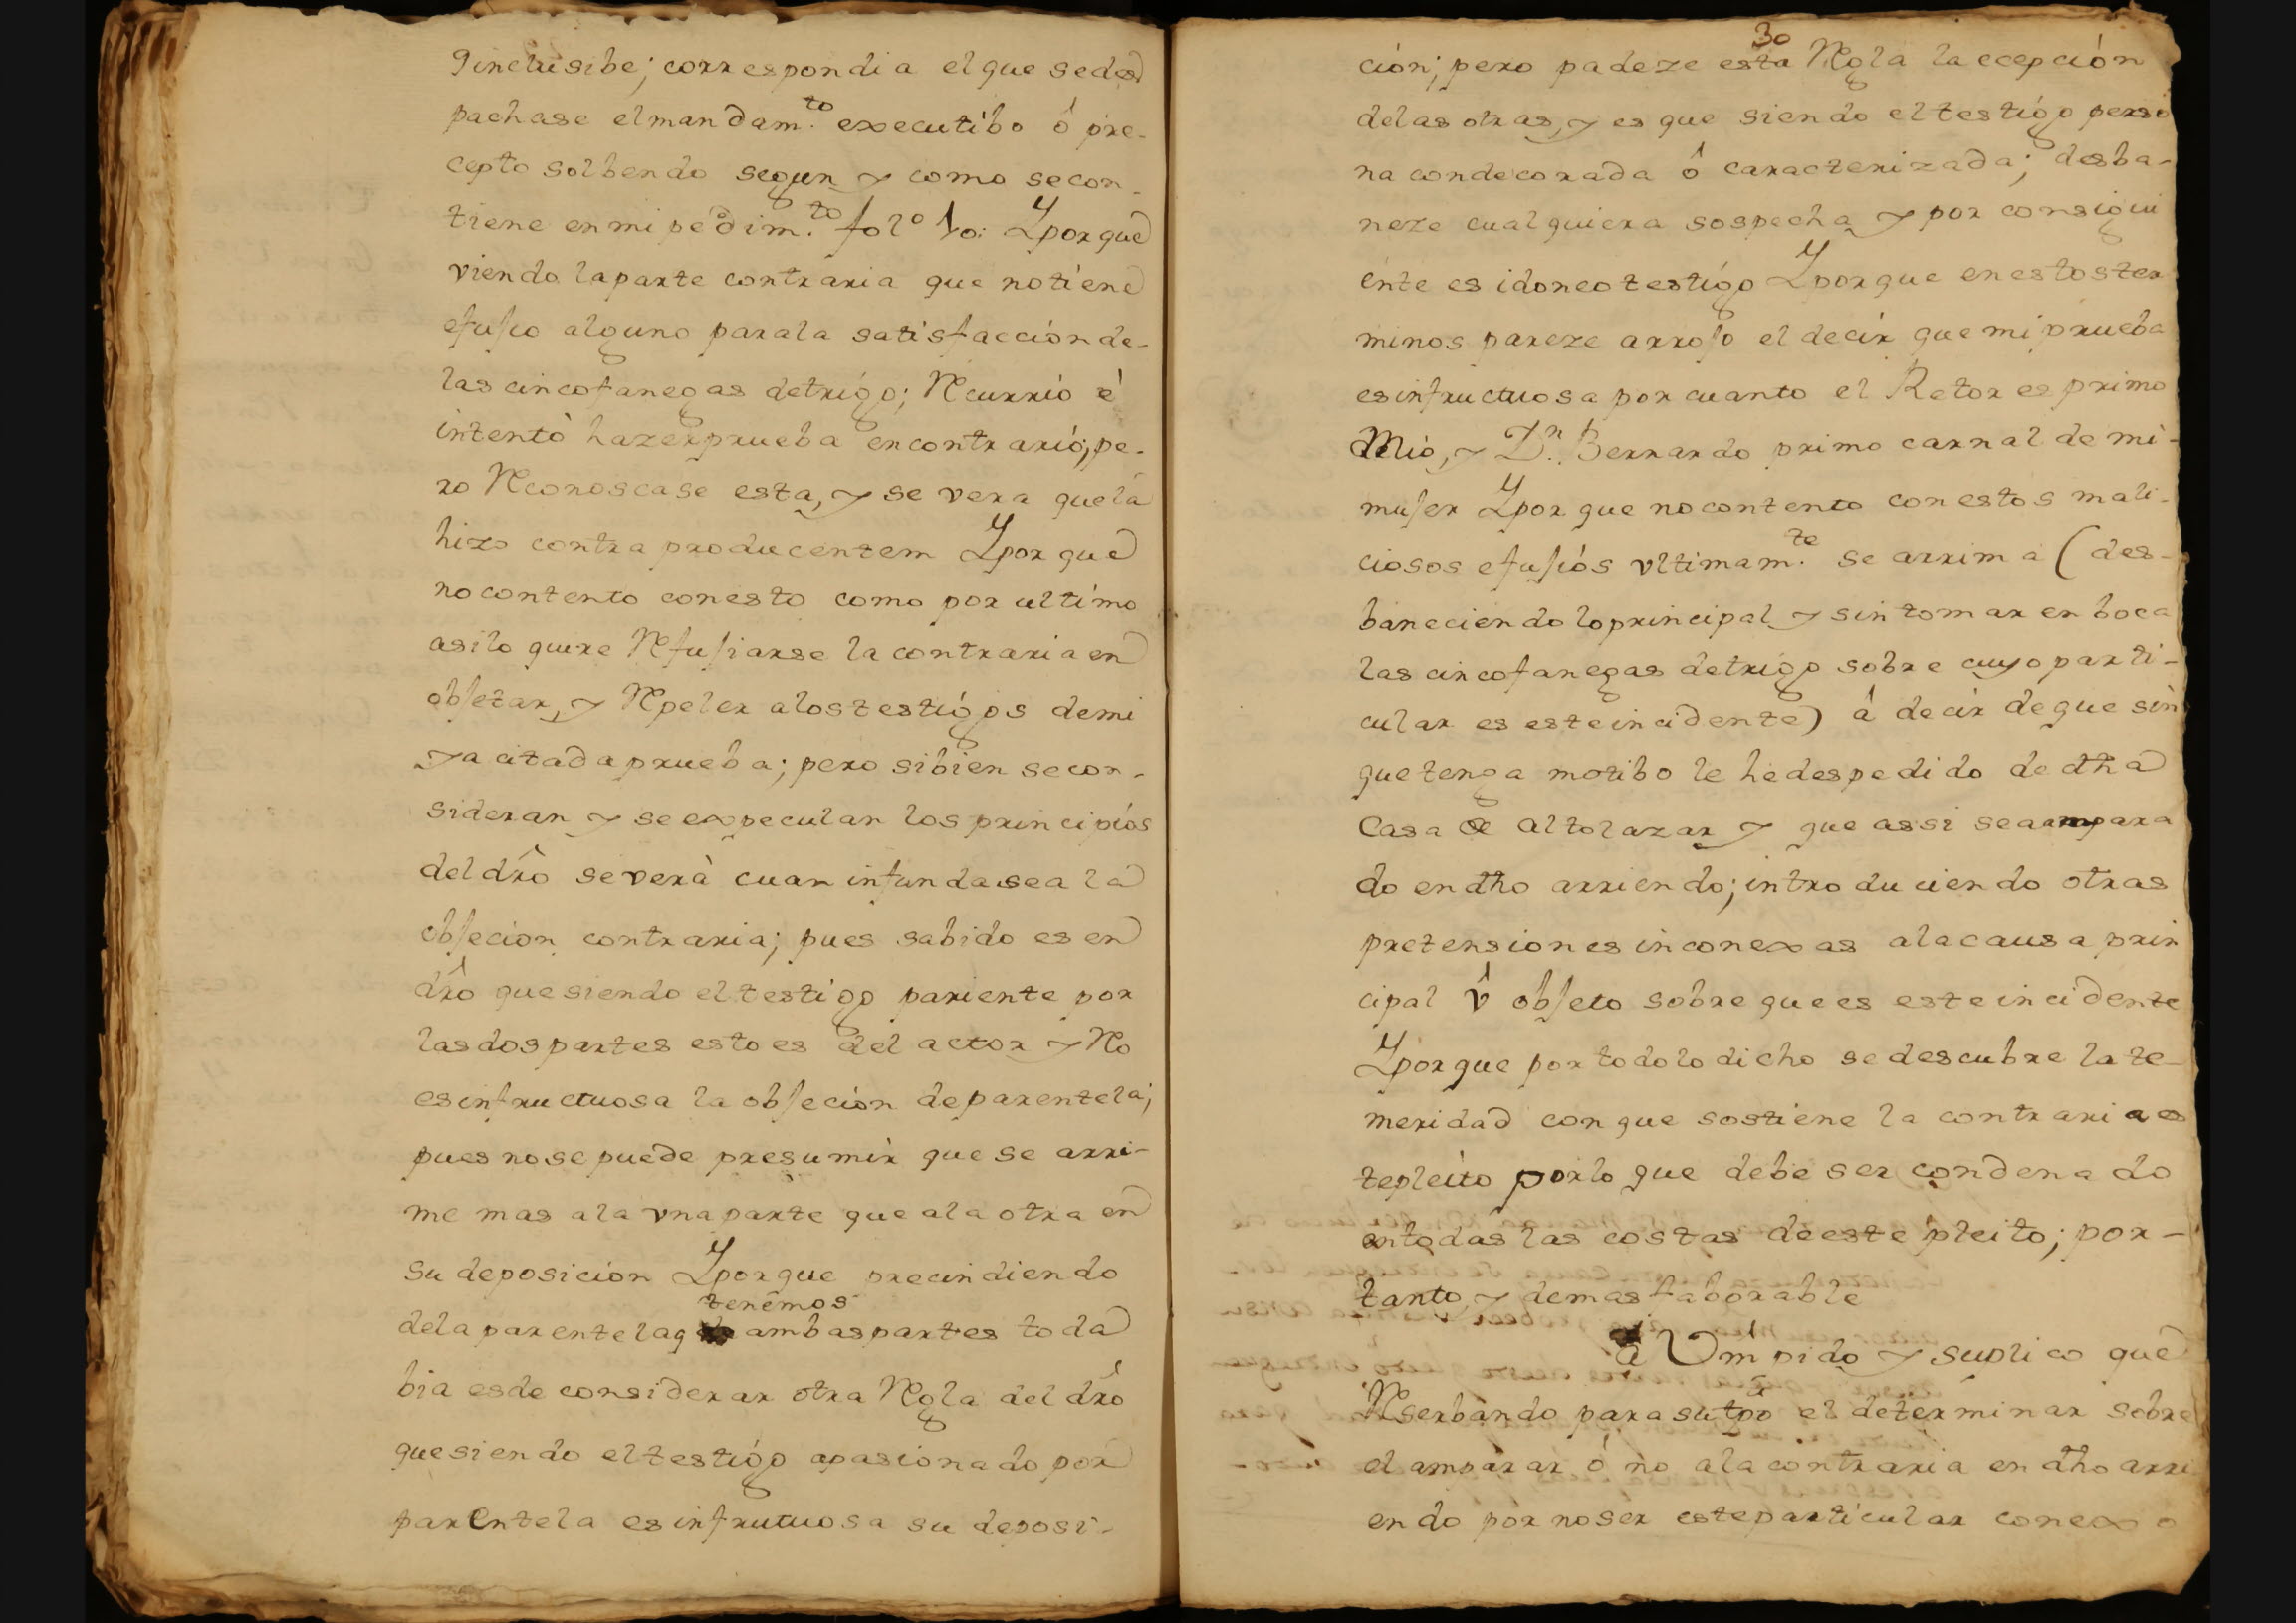 9 inclusibe; correspondia el que se des
pachase el mandam.to executibo ô pre-
cepto solbendo segun y como se con-
tiene en mi pedim.to fol.o 1o: Y porque
viendo la parte contraria que no tiene
efujio alguno para la satisfacción de-
las cinco fanegas de trigo; Rcurriò è
intentò hazer prueba en contrariò; pe-
ro Rconoscase esta, y se vera que la
hizo contra producentem Y porque
no contento con esto como por ultimo
asilo quire Rfujiarse la contraria en
objetar, y Rpeler a los testigos de mi
ya citada prueba; pero si bien se con-
sideran y se expeculan los principios
del dr̂o se verà cuan infunda sea la
objecion contraria; pues sabido es en
dr̂o que siendo el testigo pariente por
las dos partes esto es del actor y Ro
es infructuosa la objeciòn de parentela;
pues no se puede presumir que se arri-
me mas a la vna parte que a la otra en
su deposicion Y porque precindiendo
tenêmos
de la parentela q ambas partes toda
bia es de considerar otra Rgla del dr̂o
que siendo el testigo apasionado por
parentela es infrutuosa su deposi-
30
ciòn; pero padeze esta Rgla la ecepciòn
de las otras, y es que siendo el testigo perso
na condecorada ô caracterizada; desba-
neze cualquiera sospecha y por consigui
ente es idoneo testigo Y porque en estos ter
minos pareze arrojo el decir que mi prueba
es infructuosa por cuanto el Retor es primo
Mio, y D.n Bernardo primo carnal de mi-
mujer Y porque no contento con estos mali-
ciosos efujiòs vltimam.te se arrima (des-
baneciendo lo principal y sin tomar en boca
las cinco fanegas de trigo sobre cuyo parti-
cular es este incidente) â decir de que sin
que tenga motibo le he despedido de dha
Casa de Altolazar y que assi sea ampara
do en dho arriendo; introduciendo otras
pretensiones inconexas a la causa prin
cipal v̂ objeto sobre que es este incidente
Y porque por todo lo dicho se descubre la te-
meridad con que sostiene la contraria es
te pleito por lo que debe ser condenado
en todas las costas de este pleito; por-
tanto, y demas faborable
a Vm pido y suplico que
Rserbando para su tpo el determinar sobre
el amparar ò no a la contraria en dho arri
endo por no ser este particular conexo